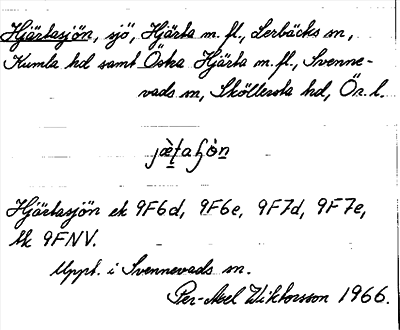 Hjärtasjön, sjö, Hjärta m.fl., Lerbäcks sn,
Kumla hd samt Östra Hjärta m.fl., Svenne-
vads sn, Sköllersta hd, Ör. l.
Hjärtasjön ek 9F6d, 9F6e, 9F7d, 9F7e,
tk 9FNV.
Uppt. i Svennevads sn.
Per-Axel Wiktorsson 1966.